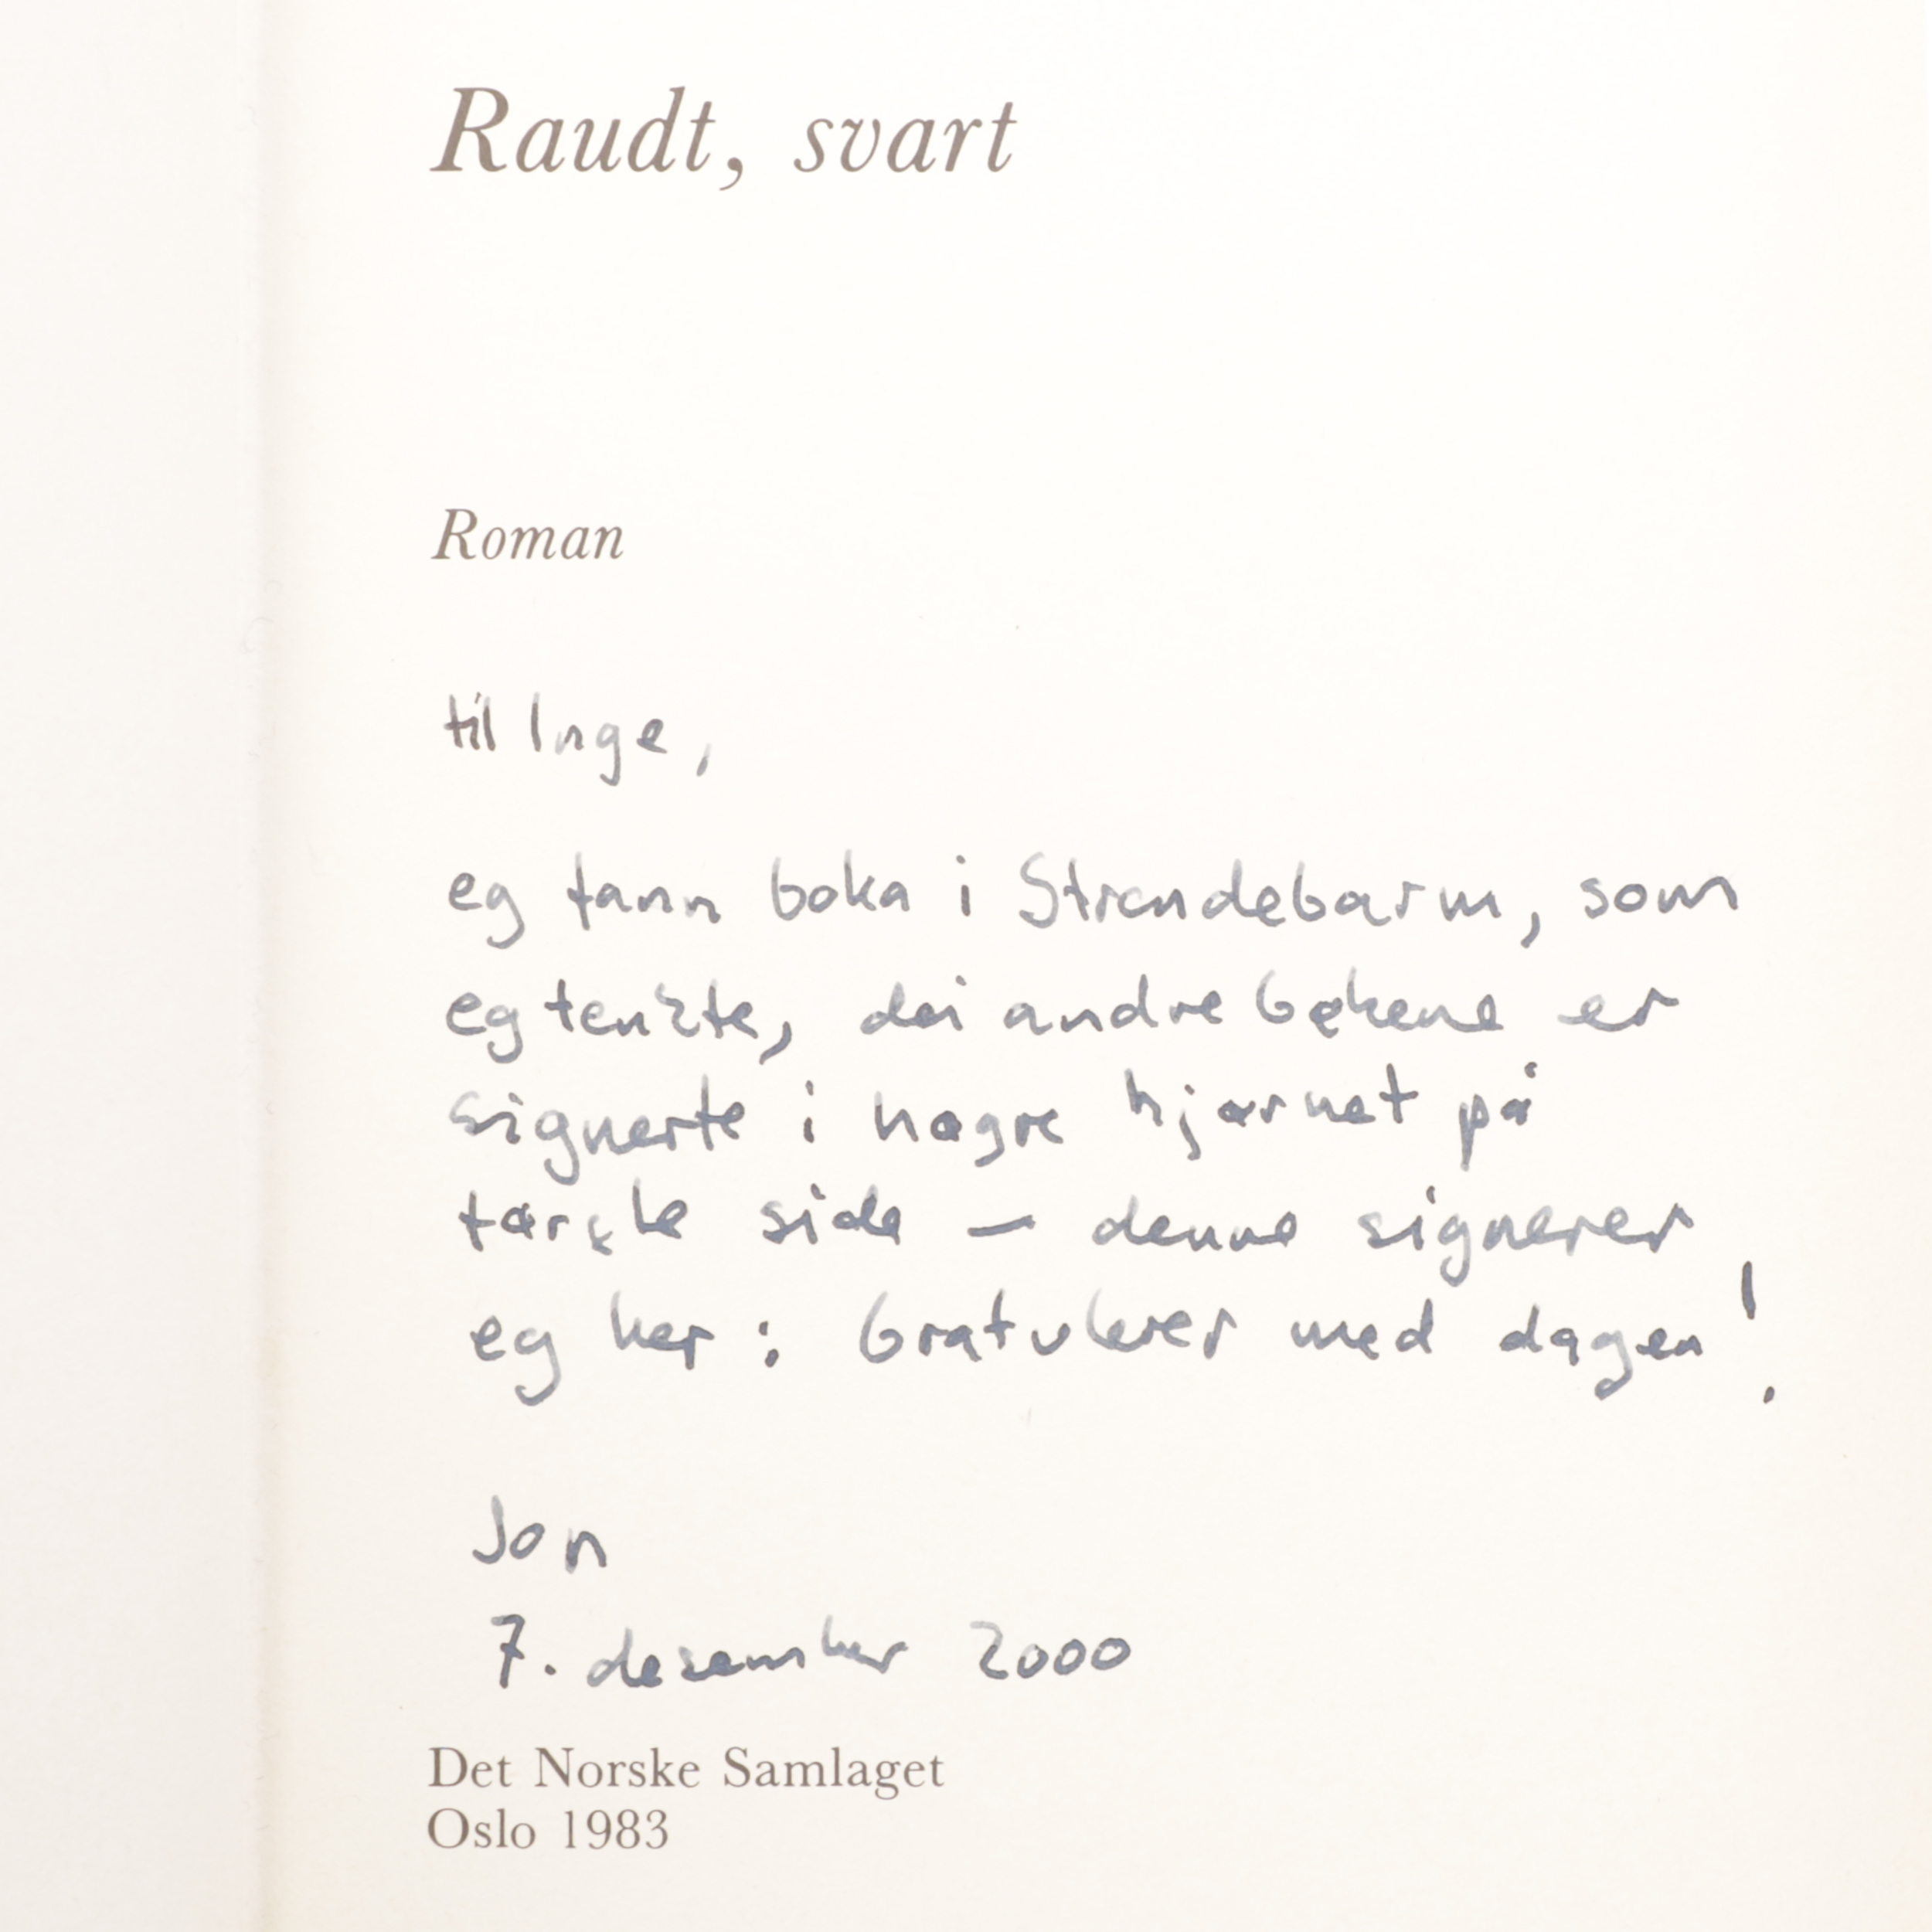 Raudt, svart
Roman
til Inge,
eg fann boka i Strandebarm, som
eg tenkte, dei andre bøkene er
signerte i høgre hjørnet på
første side – denne signerer
eg her: Gratulerer med dagen!
Jon
7. desember 2000
Det Norske Samlaget
Oslo 1983